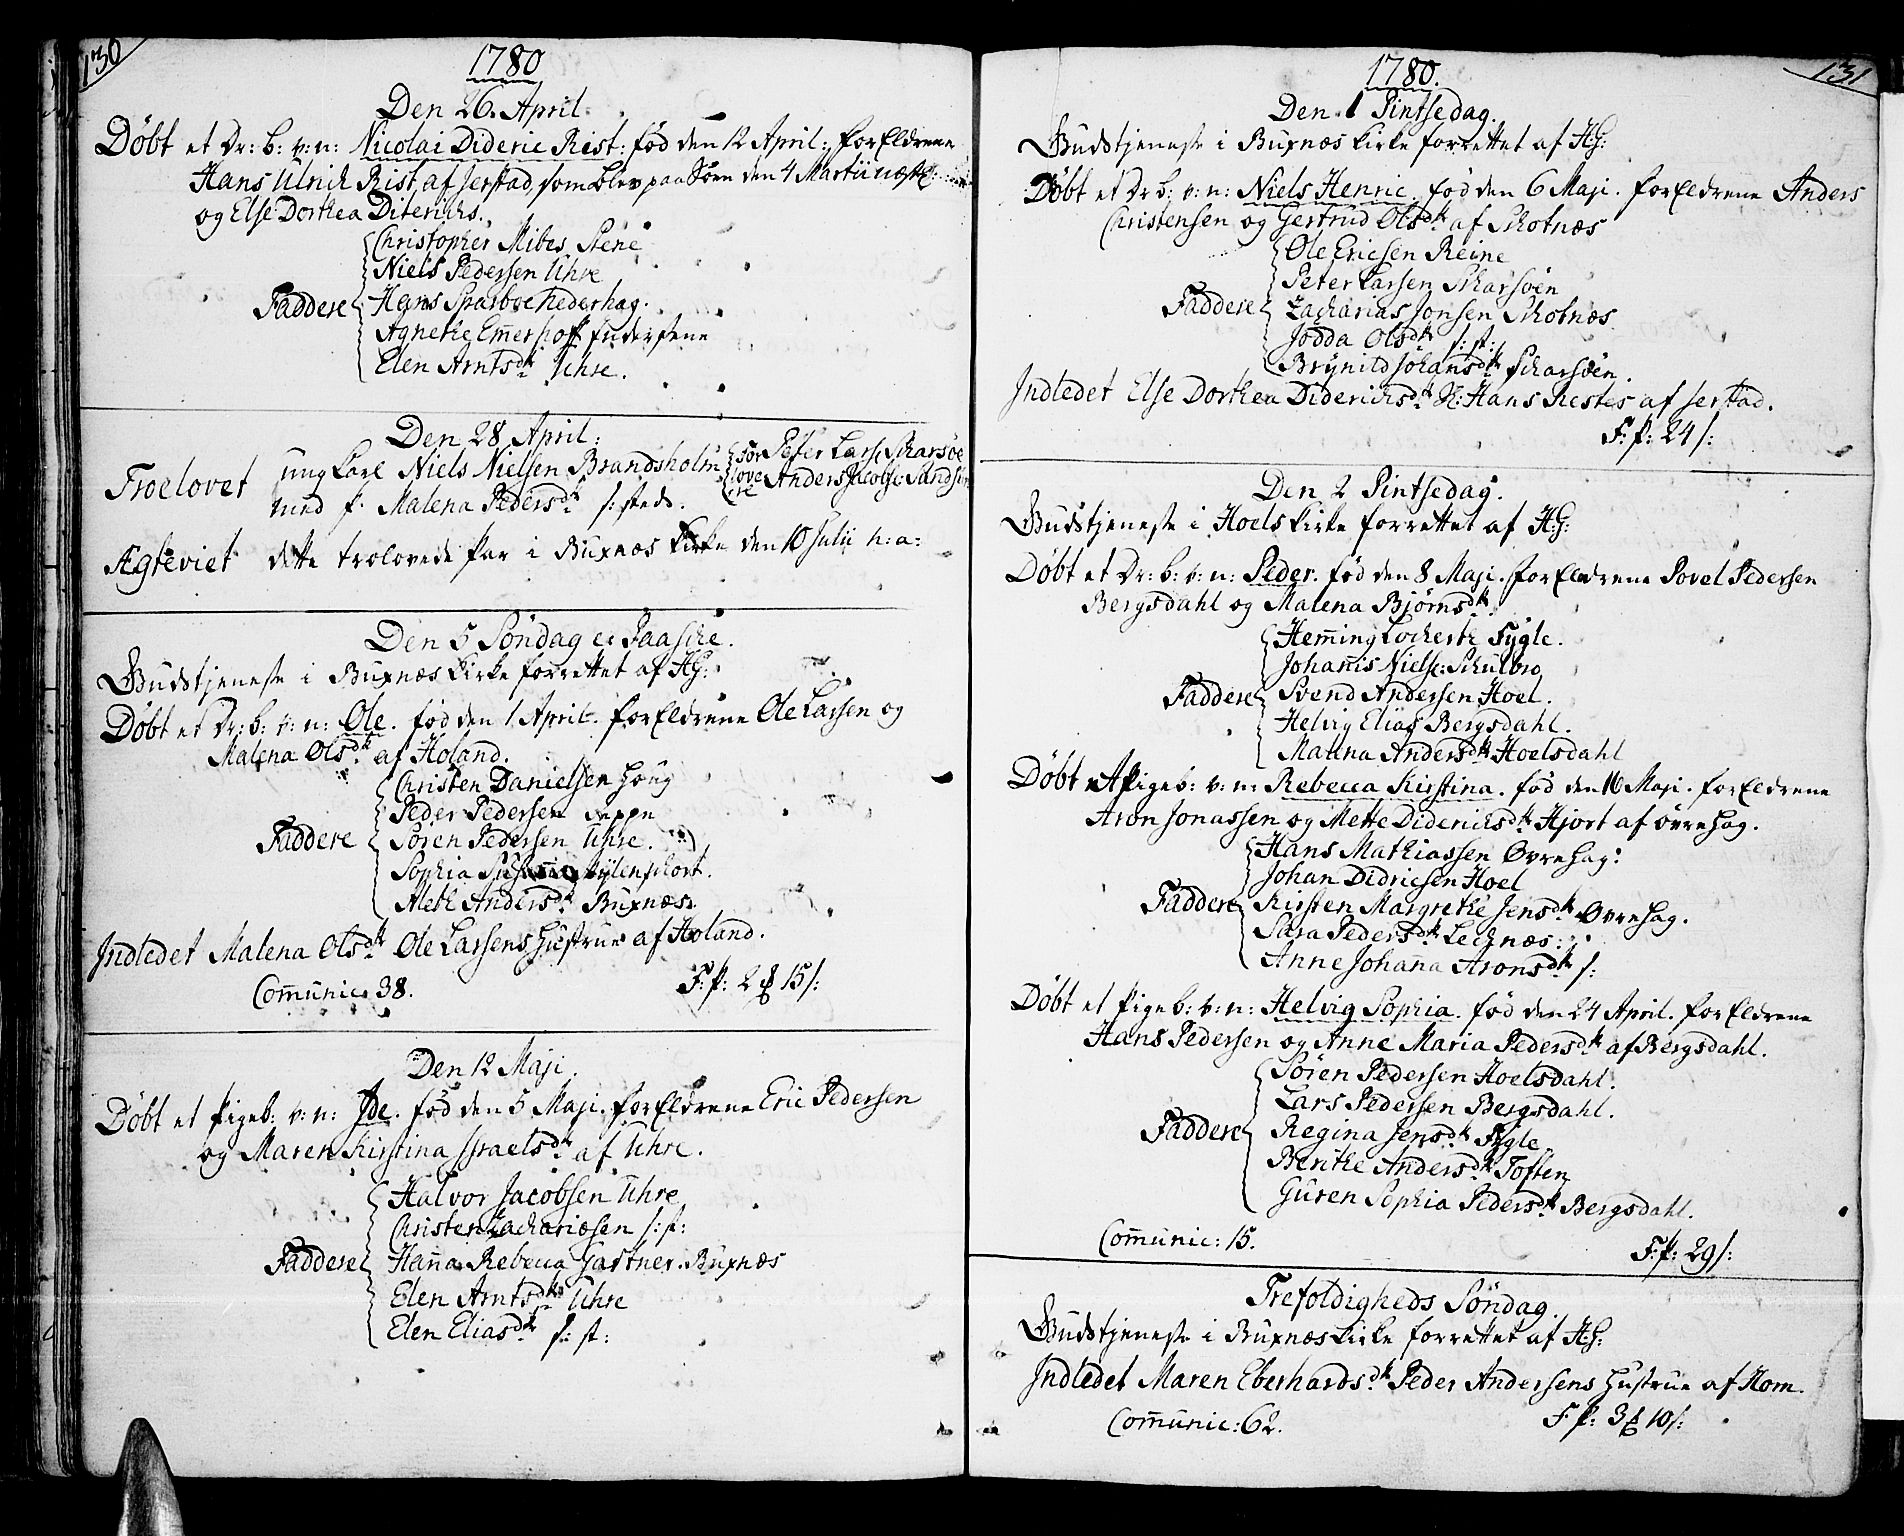 130
1780
Den 26. April.
Döbt et Dr: b: v: n: Nicolai Dideric Rist: föd den 12 April: forEldrene
Hans Ulrich Rist, af Jerstad, som blev paa Söen den 4 Martii
og Else Dorthea Diderichs.
Christopher Mibes Stene
Niels Pedersen Uhre
Faddere Hans Sparboe Nederhag.
Agnethe Em̄erhoff
Elen Arntsdtr Uhre.
Den 28 April:
Troelovet ung Karl Niels Nielsen Brandsholm for Peter Lars: Scharsöe
love Anders Jacobs:
med p. Malena Pedersdtr s: steds. re
Ægteviet dette trolovede Par i Buxnæs Kirke den 10 Julii h: a:
Den 5 Söndag e: Paaske.
Gudstjeneste i Buxnæs Kirke forrettet af HG:
Döbt et Dr: b: v: n: Ole. föd den 1 April. forEldrene Ole Larsen og
Malena Olsdtr af Holand.
Christen Danielsen Houg
Peder Pedersen
Faddere Sören Pedersen Uhre.
Sophia
Aleth Andersdtr Buxnæs.
Indledet Malena Olsdtr Ole Larsens Hustrue af Holand.
Com̄unic: 38. F: P: 2 15 s:
Den 12 Maji.
Döbt et Pigeb: v: n: Ide. föd den 5 Maji. forEldrene Eric Pedersen
og Maren Kirstina Israelsdtr af Uhre.
Halvor Jacobsen Uhre
Christen Zachariæsen s: st:
Faddere Han̄a Rebecca Gartner. Buxnæs
Elen Arntsdtr Uhre
Elen Eliasdtr s: st:
131
1780.
Den 1 Pintsedag.
Gudstjeneste i Buxnæs Kirke forrettet af HG:
Döbt et Dr: b: v: n: Niels Henric. föd den 6 Maji. forEldrene Anders
Christensen og Gertrud Olsdtr af Skotnæs
Ole Ericsen Reine
Peter Larsen Skarsöen
Faddere Zacharias Jonsen Skotnæs.
Jödda Olsdtr s: st:
Brynild Johansdtr Scharsöen.
Indledet Else Dorthea Diderichsdtr S: Hans Restes af Jerstad.
F: P: 24 s:
Den 2 Pintsedag.
Gudstjeneste i Hoels Kirke forrettet af HG:
Döbt et Dr: b: v: n: Peder. föd den 8 Maji. forEldrene Povel Pedersen
Bergsdahl og Malena Björnsdtr
Hem̄ing Lockerth Fygle.
Johan̄is Niels: Skulbro
Faddere Svend Andersen Hoel.
Helvig Elias Bergsdahl.
Malena Andersdtr Hoelsdahl
Döbt et Pigeb: v: n: Rebecca Kirstina. föd den 16 Maji. forEldrene
Aron Jonassen og Mette Diderichsdtr Hjort af övrehag.
Hans Mathiassen Övrehag:
Johan Didricsen Hoel
Faddere Kirsten Margrethe Jensdtr Övrehag.
Sara Pedersdtr Lecknæs:
Anne Johan̄a Aronsdtr s:
Döbt et Pigeb: v: n: Helvig Sophia. föd den 24 April. forEldrene
Hans Pedersen og Anne Maria Pedersdtr af Bergsdahl.
Sören Pedersen Hoelsdahl.
Lars Pedersen Bergsdahl.
Faddere Regina Jensdtr Fygle
Berithe Andersdtr Toften
Guren Sophia Pedersdtr Bergsdahl.
Com̄unic: 15. F: P: 29 s:
Trefoldigheds Söndag.
Gudstjeneste i Buxnæs Kirke forrettet af HG:
Indledet Maren Eberhardsdtr Peder Andersens Hustrue af Hom.
Com̄unic: 62. F: P: 3 10 s: